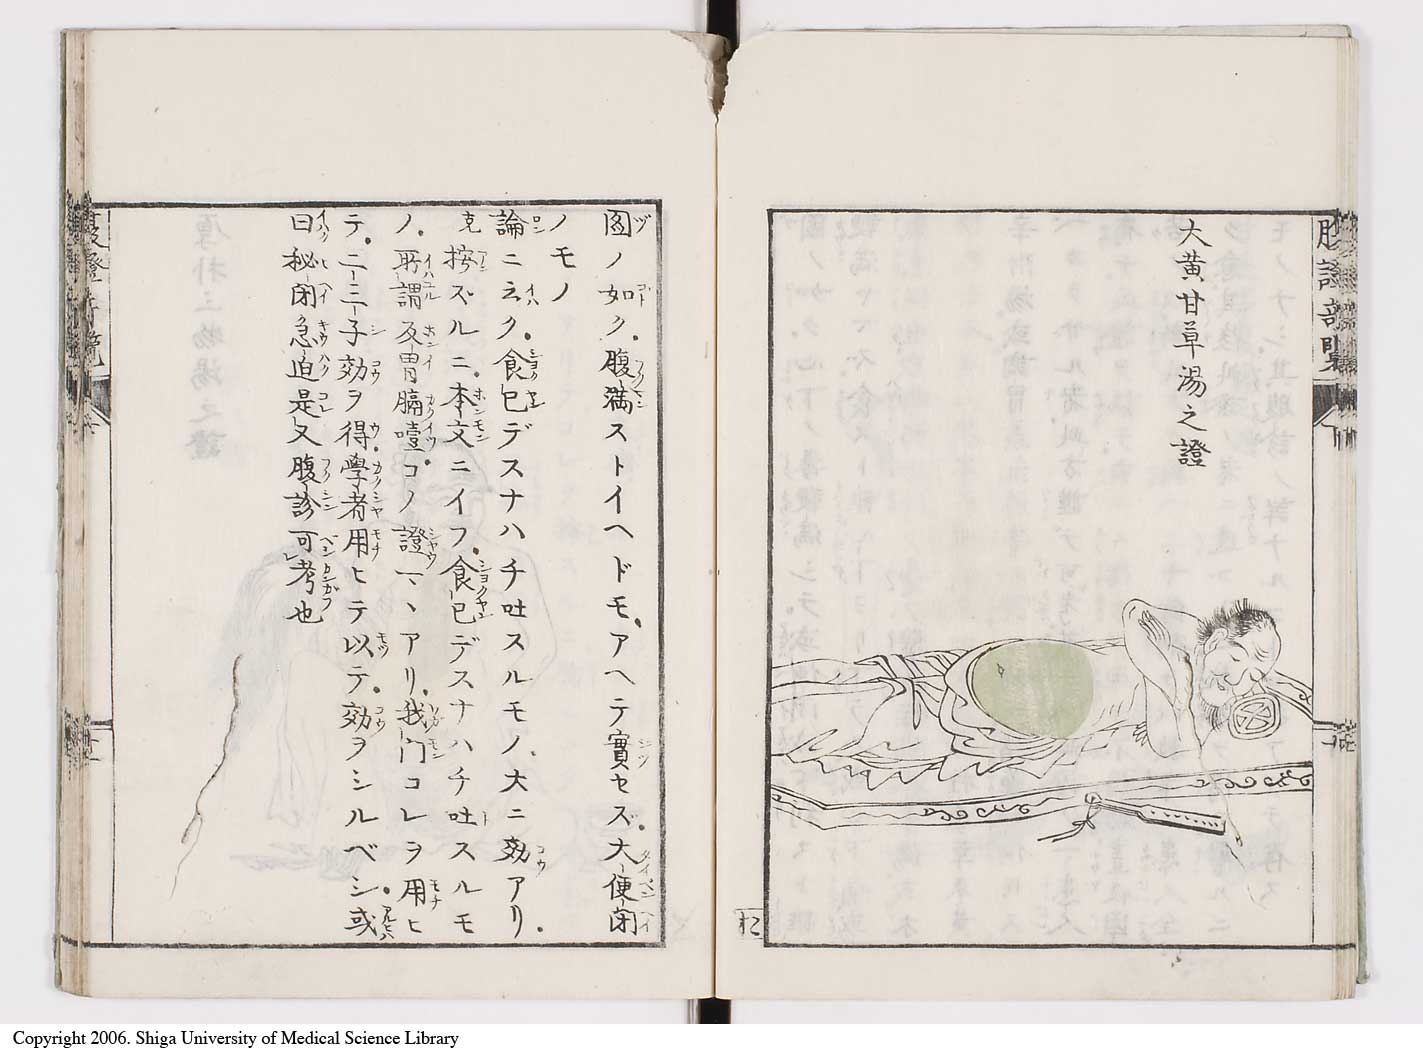 腹證奇覧
大黄甘草湯之證
圖ノ如ク腹満ストイヘドモ、アヘテ實セズ、大便閉
ノモノ
論ニ云ク、食已デスナハチ吐スルモノ、大ニ効アリ、
克按ズルニ、本文ニイフ、食已デスナハチ吐スルモ
ノ、所謂反胃膈噎コノ證一、アリ、我門コレヲ用ヒ
テ、二三子効ヲ得、學者用ヒテ以テ、効ヲシルベシ、或
曰秘閉急迫是又腹診可レ考也
腹證奇覧
Copyright 2006. Shiga University of Medical Science Library